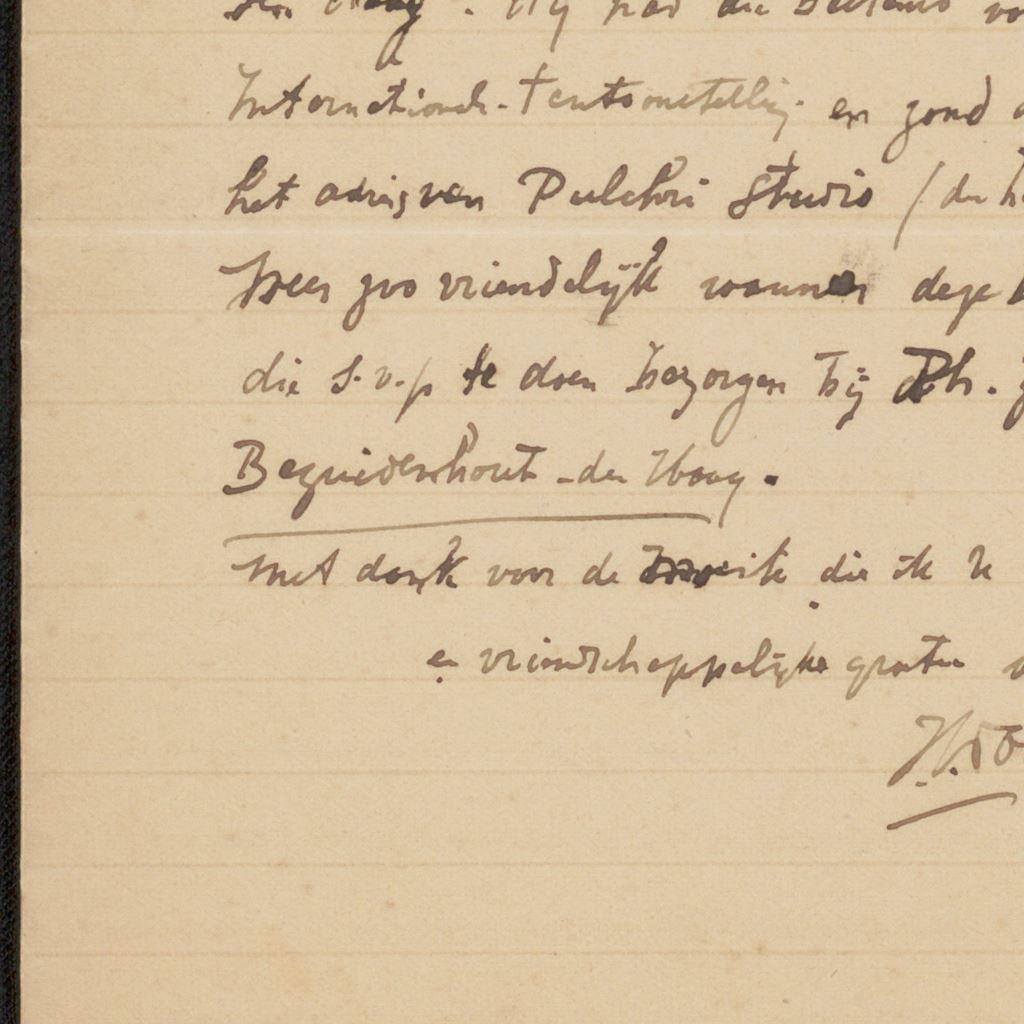 den Haag. Hij had die
Internationale Tentoonstelling en zond
het adres van Pulchri Studio (den
Wees zoo vriendelijk wanneer deze
die s.v.p te doen bezorgen bij Ph.
Bezuidenhout - den Haag.
Met dank voor de moeite die ik U
en vriendschappelijke groeten